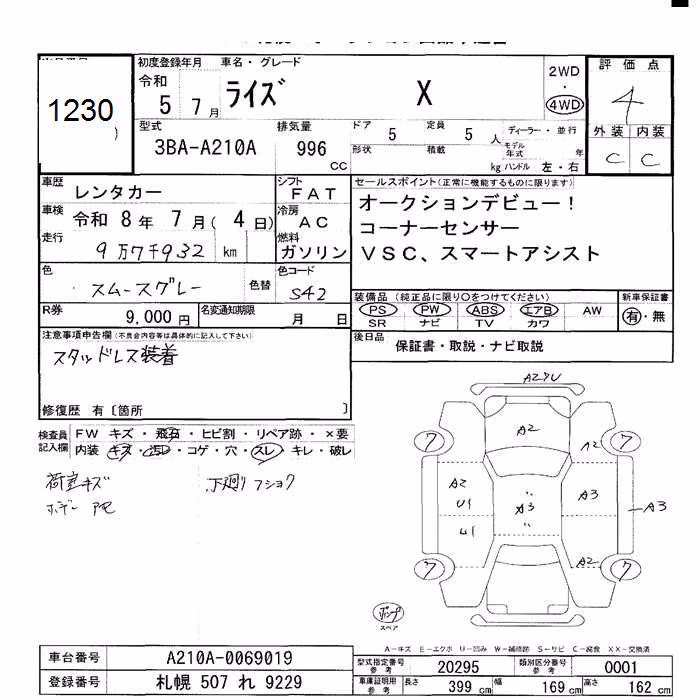 初度登録年月 車名・グレード
令和 5 7月 ライズ X
2WD
・
4WD
評価点
4
外装 内装
C C
1230
型式 排気量 ドア 定員 ディーラー・並行
3BA-A210A 996 CC 5 5 人
形状 積載 kg モデル年式 年 ハンドル 左・右
車歴 レンタカー シフト FAT
車検 令和 8年 7月( 4日) 冷房 AC
走行 9万7千932 km 燃料 ガソリン
色 スムースグレー 色替 色コード S42
R券 9,000円 名変通知期限 月 日
セールスポイント(正常に機能するものに限ります)
オークションデビュー!
コーナーセンサー
VSC、スマートアシスト
装備品(純正品に限り○をつけてください) 新車保証書
PS PW ABS エアB AW 有・無
SR ナビ TV カワ
後日品 保証書・取説・ナビ取説
注意事項申告欄(不具合内容等は具体的に記入して下さい)
スタッドレス装着
修復歴 有〔箇所 〕
検査員記入欄 FW キズ・飛石・ヒビ割・リペア跡・×要
内装 キズ・汚レ・コゲ・穴・スレ・キレ・破レ
荷室キズ 下廻りフショク
ボデー
A2
A2
7 7
A2 A3 A3
U1 A3
U1
A2
7 7
スペア
A-キズ E-エクボ U-凹み W-補修跡 S-サビ C-腐食 XX-交換済
車台番号 A210A-0069019
登録番号 札幌 507 れ 9229
型式指定番号 参考 20295 類別区分番号 参考 0001
車庫証明用 参考 長さ 399 cm 幅 169 cm 高さ 162 cm